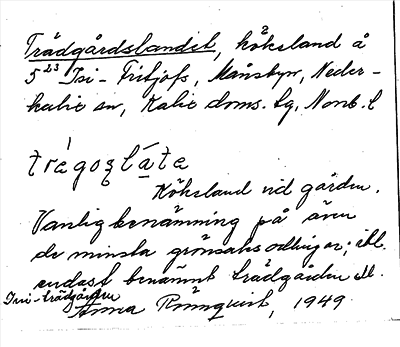 Trädgårdslandet, köksland å
5²³ Isi-Fritjofs, Månsbyn, Neder-
kalix sn, Kalix doms. tg, Norrb. l
trégoʒlá̱te
Köksland vid gården.
Vanlig benämning på även
de minsta grönsaksodlingar; ibl.
endast benämnt trädgården el.
Isi-trädgården
Anna Rönnqvist, 1949.